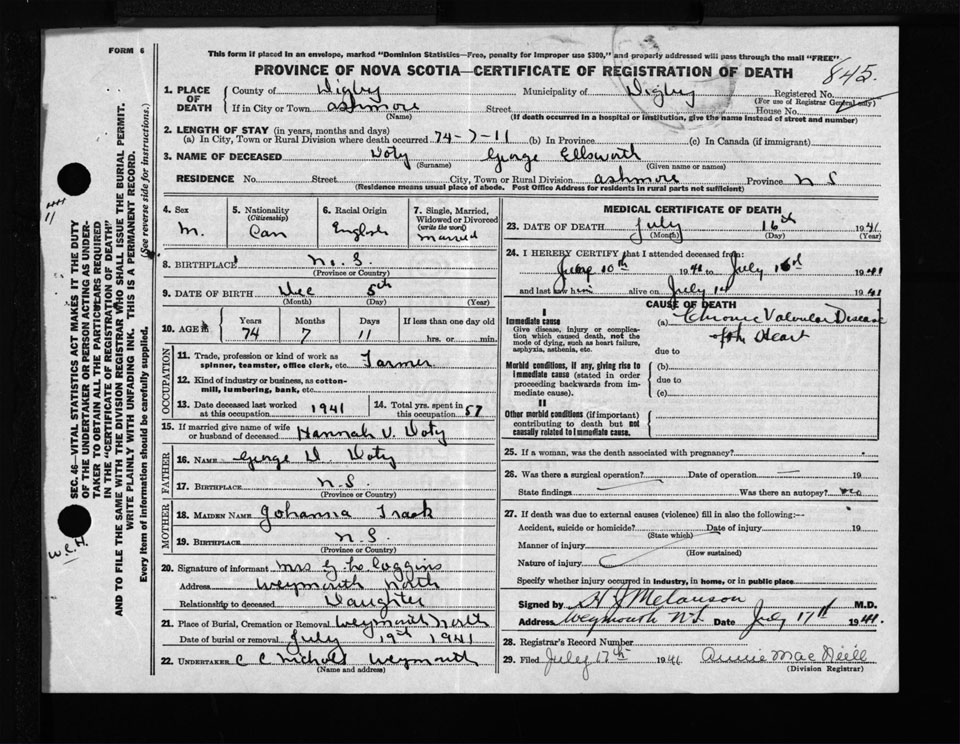 FORM 6
This form if placed in an envelope, marked "Dominion Statistics—Free, penalty for improper use $300," and properly addressed will pass through the mail "FREE"
PROVINCE OF NOVA SCOTIA—CERTIFICATE OF REGISTRATION OF DEATH
845.
1. PLACE OF DEATH County of Digby Municipality of Digby Registered No.
(For use of Registrar General only)
If in City or Town Ashmore Street House No.
(Name) (If death occurred in a hospital or institution, give the name instead of street and number)
2. LENGTH OF STAY (in years, months and days)
(a) In City, Town or Rural Division where death occurred 74-7-11 (b) In Province (c) In Canada (if immigrant)
3. NAME OF DECEASED Doty George Ellsworth
(Surname) (Given name or names)
RESIDENCE No. Street City, Town or Rural Division Ashmore Province N S
(Residence means usual place of abode. Post Office Address for residents in rural parts not sufficient)
4. Sex M.
5. Nationality (Citizenship) Can
6. Racial Origin English
7. Single, Married, Widowed or Divorced (write the word) Married
8. BIRTHPLACE N. S.
(Province or Country)
9. DATE OF BIRTH Dec 5th
(Month) (Day) (Year)
10. AGE Years Months Days If less than one day old
74 7 11 hrs. or min.
OCCUPATION
11. Trade, profession or kind of work as spinner, teamster, office clerk, etc. Farmer
12. Kind of industry or business, as cotton-mill, lumbering, bank, etc.
13. Date deceased last worked at this occupation 1941
14. Total yrs. spent in this occupation 57
15. If married give name of wife or husband of deceased Hannah V. Doty
FATHER
16. NAME George D. Doty
17. BIRTHPLACE N.S.
(Province or Country)
MOTHER
18. MAIDEN NAME Johanna Trask
19. BIRTHPLACE N. S.
(Province or Country)
20. Signature of informant Mrs Coggins
Address Weymouth North
Relationship to deceased Daughter
21. Place of Burial, Cremation or Removal Weymouth North
Date of burial or removal July 19th 1941
22. UNDERTAKER C C Nichols Weymouth
(Name and address)
MEDICAL CERTIFICATE OF DEATH
23. DATE OF DEATH July 16th 1941
(Month) (Day) (Year)
24. I HEREBY CERTIFY that I attended deceased from:
10th 1941 to July 16th 1941
and last saw him alive on July 1941
CAUSE OF DEATH
I
Immediate cause
Give disease, injury or complication which caused death, not the mode of dying, such as heart failure, asphyxia, asthenia, etc.
(a) Chronic Valvular Disease of the Heart
due to
Morbid conditions, if any, giving rise to immediate cause (stated in order proceeding backwards from immediate cause).
(b)
due to
(c)
II
Other morbid conditions (if important) contributing to death but not causally related to immediate cause.
25. If a woman, was the death associated with pregnancy?
26. Was there a surgical operation? Date of operation 19
State findings Was there an autopsy? No
27. If death was due to external causes (violence) fill in also the following:—
Accident, suicide or homicide? Date of injury 19
(State which)
Manner of injury
(How sustained)
Nature of injury
Specify whether injury occurred in industry, in home, or in public place
Signed by Melanson M.D.
Address Weymouth N.S. Date July 17th 1941.
28. Registrar's Record Number
29. Filed July 17th 1941 Annie MacNeill
(Division Registrar)
SEC. 46—VITAL STATISTICS ACT MAKES IT THE DUTY
OF THE UNDERTAKER OR PERSON ACTING AS UNDERTAKER TO OBTAIN ALL THE PARTICULARS REQUIRED
IN THE "CERTIFICATE OF REGISTRATION OF DEATH"
AND TO FILE THE SAME WITH THE DIVISION REGISTRAR WHO SHALL ISSUE THE BURIAL PERMIT.
WRITE PLAINLY WITH UNFADING INK. THIS IS A PERMANENT RECORD.
Every item of information should be carefully supplied. (See reverse side for instructions.)
W.C.H.